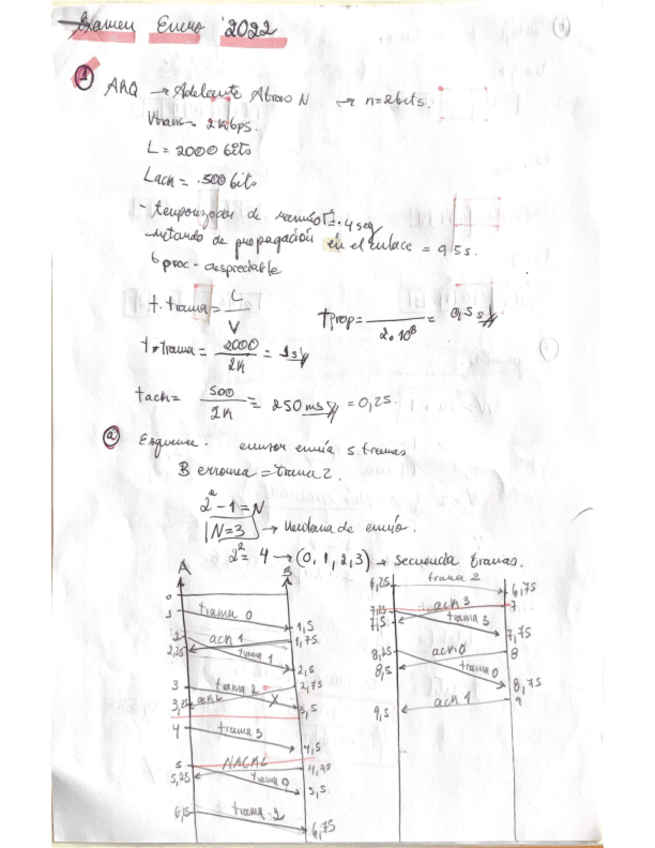 Examen Enero 2022
① ARQ → Adelante Atras N → n=2bits.
Vtrans = 2Kbps.
L = 2000 bits
Lack = 500 bits
- temporizador de = 4 seg
- retardo de propagación en el enlace = 0,5s.
t proc - despreciable
t. trama = L / V
Tprop = / 2·10⁸ = 0,5 s
t. trama = 2000 / 2K = 1s
tack = 500 / 2K = 250 ms = 0,25.
ⓐ Esquema. emisor envía 5 tramas
B erronea = trama 2.
2² - 1 = N
N=3 → Ventana de envío.
2² = 4 → (0, 1, 2, 3) → secuencia tramas.
A B
0
1 trama 0 1,5
ack 1 1,75
2
2,25 trama 1 2,5
3 trama 2 2,75
3,25 ack 2 X 3,5
4 trama 3 4,5
5 NACK2 4,75
5,25 trama 0 5,5.
6,25 trama 2 6,75
6,25 trama 2 6,75
7,25 ack 3 7
7,5 trama 3 7,75
8,25 ack 0 8
8,5 trama 0 8,75
9,5 ack 1 9